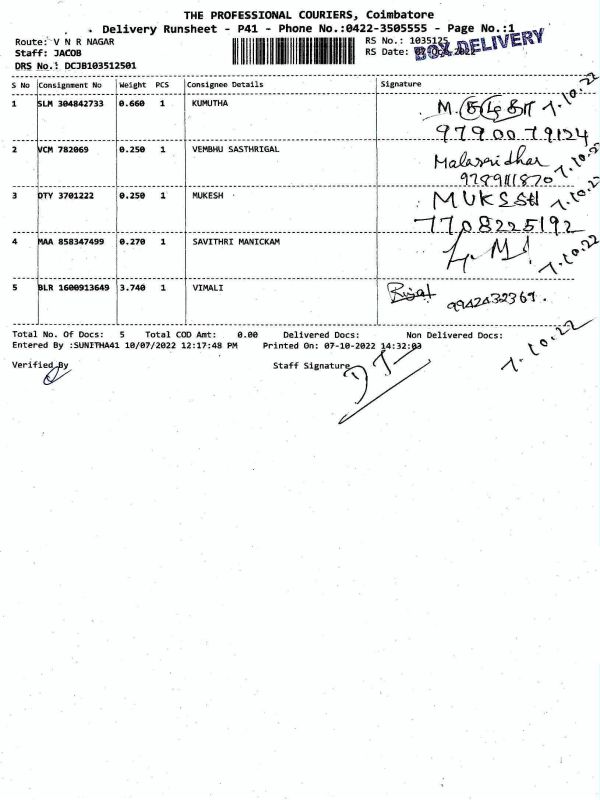 THE PROFESSIONAL COURIERS, Coimbatore
Delivery Runsheet - P41 - Phone No.:0422-3505555 - Page No.:1
Route: V N R NAGAR RS No.: 1035125
Staff: JACOB RS Date:
BOX DELIVERY
DRS No.: DCJB103512501
S No Consignment No Weight PCS Consignee Details Signature
1 SLM 304842733 0.660 1 KUMUTHA M. 7.10.22
9790079124
2 VCM 782069 0.250 1 VEMBHU SASTHRIGAL Malasridhar 7.10.22
9789111870
3 DTY 3701222 0.250 1 MUKESH MUKSSH 7.10.22
7708225192
4 MAA 858347499 0.270 1 SAVITHRI MANICKAM 7.10.22
5 BLR 1600913649 3.740 1 VIMALI
9942432369.
Total No. Of Docs: 5 Total COD Amt: 0.00 Delivered Docs: Non Delivered Docs:
Entered By :SUNITHA41 10/07/2022 12:17:48 PM Printed On: 07-10-2022 14:32:03
7.10.22
Verified By Staff Signature